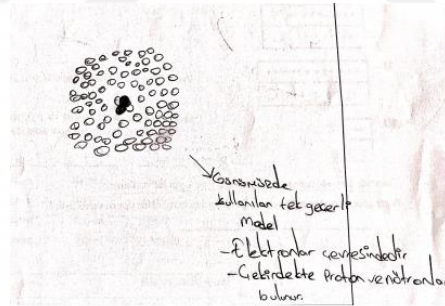 Günümüzde
kullanılan tek geçerli
model
-Elektronlar çevresindedir
-Çekirdekte Proton ve nötronlar
bulunur.